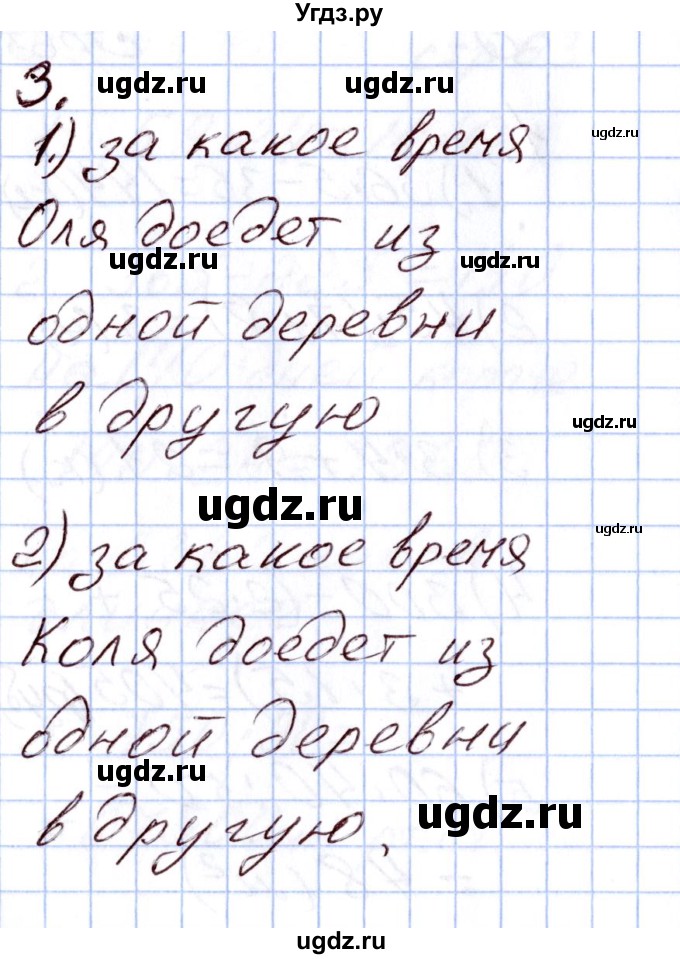 Угдз.ру
3. ugdz.ru ugdz.ru
1.) за какое время ugdz.ru
Оля доедет из
ugdz.ru ugdz.ru
одной деревни
в другую ugdz.ru
ugdz.ru ugdz.ru
2) за какое время
Коля доедет из
одной деревни
ugdz.ru
в другую. ugdz.ru
ugdz.ru